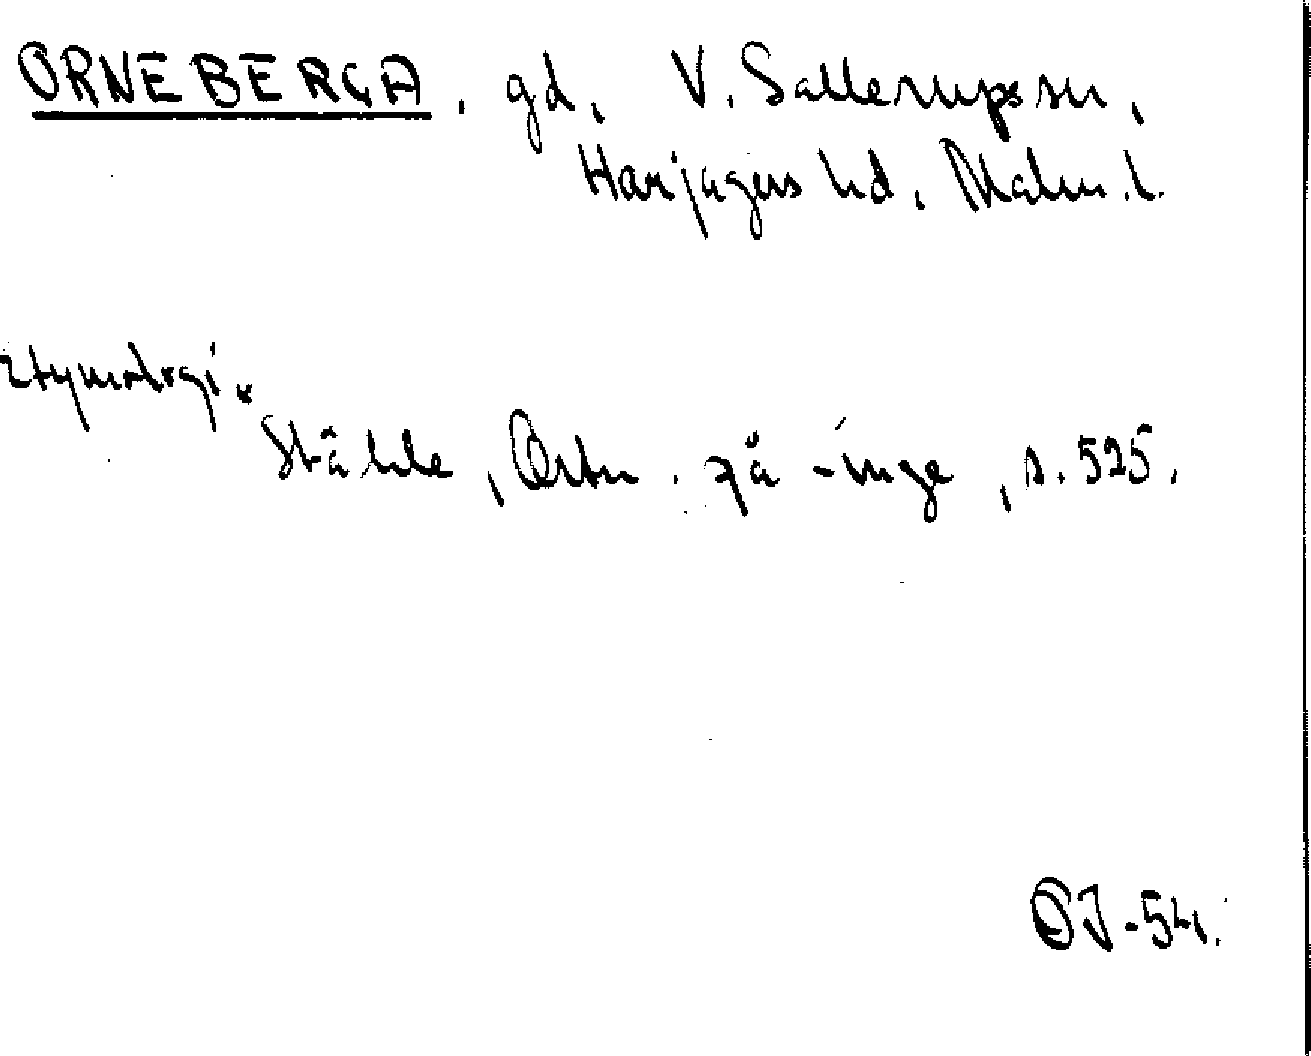 ORNEBERGA, gd, V. Sallerupssn,
Harjagers hd, Malm. l.
etymologi.
Ståhle, Ortn. på -inge, s. 525.
OJ -54.